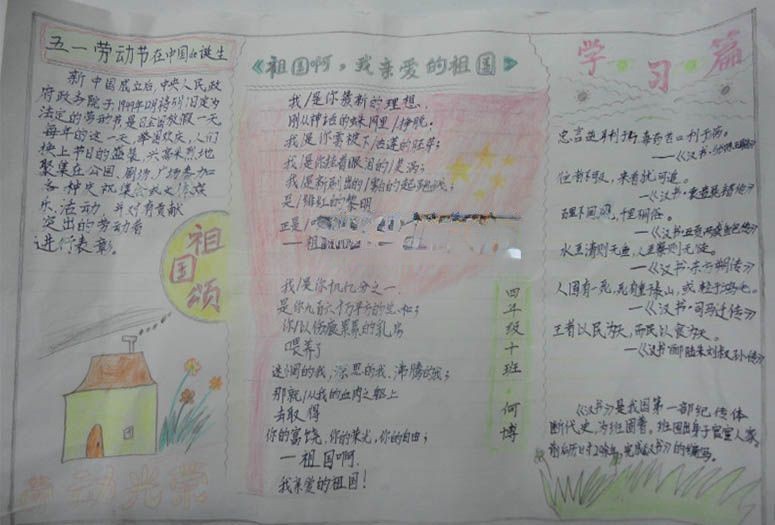 五一劳动节在中国的诞生
新中国成立后,中央人民政
府政务院于1949年12月
法定的劳动节是日全国放假一天
每年的这一天,举国欢庆,人们
换上节日的盛装,兴高采烈地
聚集在公园、剧场、广场参加
各种庆祝集会或文体娱
乐活动,并对有贡献
突出的劳动者
进行表彰。
祖国颂
劳动光荣
《祖国啊,我亲爱的祖国》
我/是你簇新的理想,
刚从神话的蛛网里/挣脱;
我/是你雪被下/古莲的胚芽;
我/是你挂着眼泪的/笑涡;
我/是新刷出的/雪白的起跑线;
是/绯红的黎明
正是/
—祖
我/是你十亿分之一,
是你九百六十万平方的总和;
你/以伤痕累累的乳房
喂养了
迷惘的我,深思的我,沸腾的我;
那就/从我的血肉之躯上
去取得
你的富饶,你的荣光,你的自由;
—祖国啊,
我亲爱的祖国!
四年级十班·何博
学习篇
忠言逆耳利于行,毒药苦口利于病。
往者不及,来者犹可追。
水至清则无鱼,人至察则无徒。
——《汉书·东方朔传》
人固有一死,死有重于泰山,或轻于鸿毛。
——《汉书·司马迁传》
王者以民为天,而民以食为天。
——《汉书·郦陆朱刘叔孙传》
《汉书》是我国第一部纪传体
断代史,为班固著。班固出身于官宦人家。